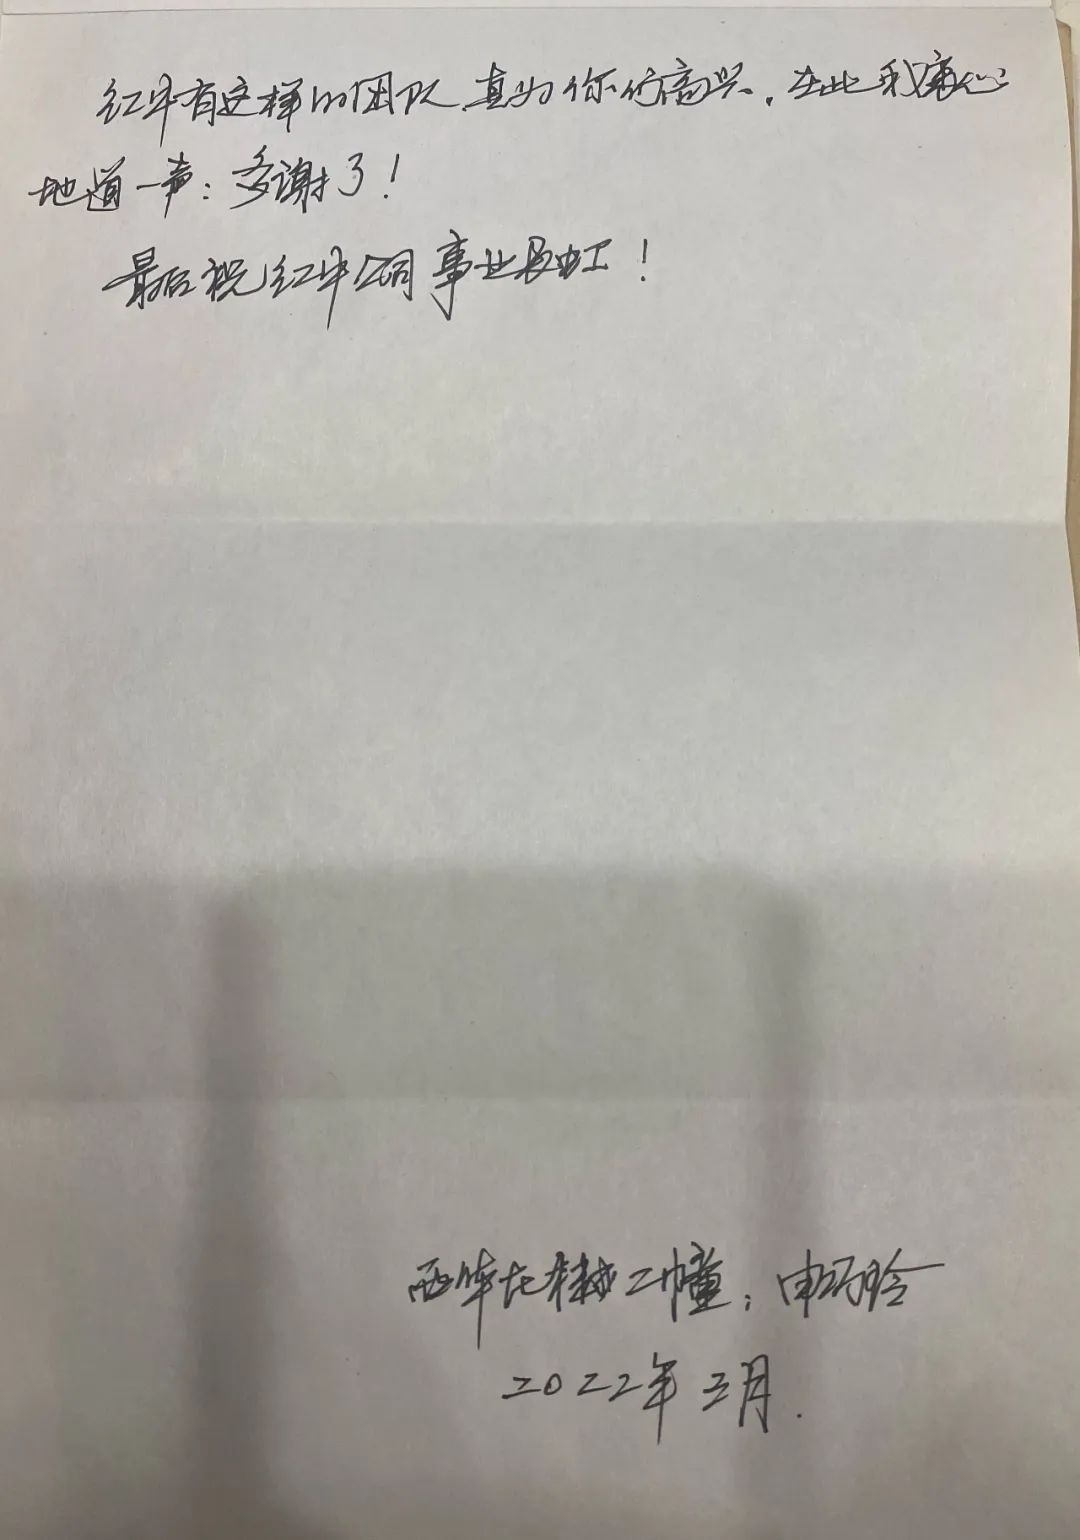 红华有这样的团队真为你们高兴，在此我衷心
地道一声：多谢了！
最后祝红华公司事业长虹！
二幢：申巧玲
2022年三月.